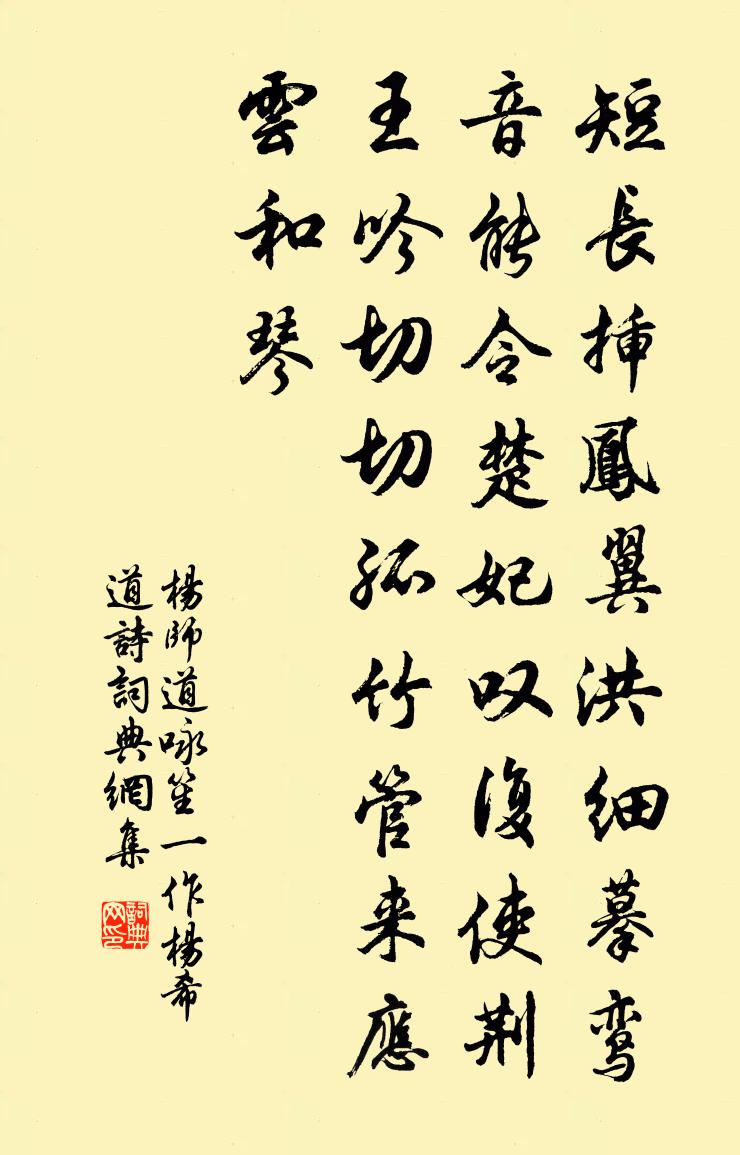 短長插鳳翼洪細摹鸞
音能令楚妃叹復使荆
王吟切切孤竹管来應
雲和琴
楊師道咏笙一作楊希
道詩詞典網集
詞典网印